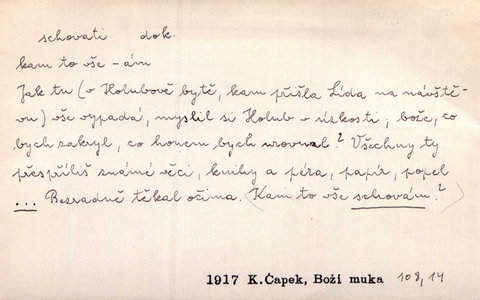 schovati dok.
kam to vše -ám
Jak tu (v Holubově bytě, kam přišla Lída na návště-
vu) vše vypadá, myslil si Holub v úzkosti; bože, co
bych zakryl, co honem bych urovnal? Všechny ty
přespříliš známé věci, knihy a péra, papír, popel
... Bezradně těkal očima. (Kam to vše schovám?)
1917 K.Čapek, Boží muka 108,14